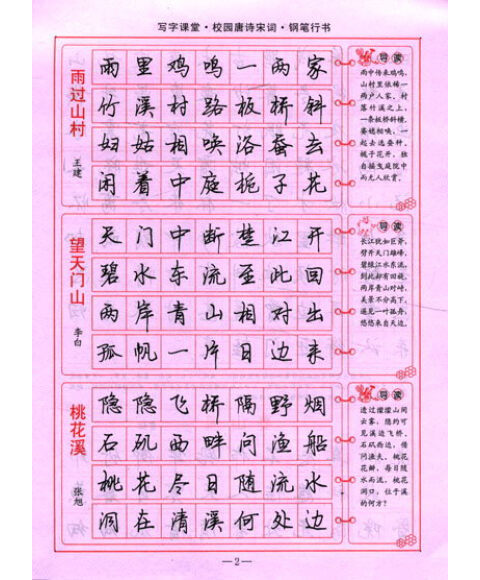 写字课堂·校园唐诗宋词·钢笔行书
雨过山村
王建
雨里鸡鸣一两家
竹溪村路板桥斜
妇姑相唤浴蚕去
闲着中庭栀子花
导读
雨中传来鸡鸣，
山村里依稀一
两户人家。村
落竹溪之上，
一条板桥斜横。
婆媳相唤，一
起去选蚕种。
栀子花开，独
自摇曳庭院中
而无人欣赏。
望天门山
李白
天门中断楚江开
碧水东流至此回
两岸青山相对出
孤帆一片日边来
导读
长江犹如巨斧，
劈开天门雄峰，
碧绿江水东流，
到此却有回旋。
两岸青山对峙，
美景不分高下，
遇见一叶孤舟，
悠悠来自天边。
桃花溪
张旭
隐隐飞桥隔野烟
石矶西畔问渔船
桃花尽日随流水
洞在清溪何处边
导读
透过朦朦山间
云雾，隐约可
见溪边飞桥。
石矶西边，借
问渔夫。桃花
花瓣，每日随
水而流，桃花
洞口，位于溪
的何方？
—2—